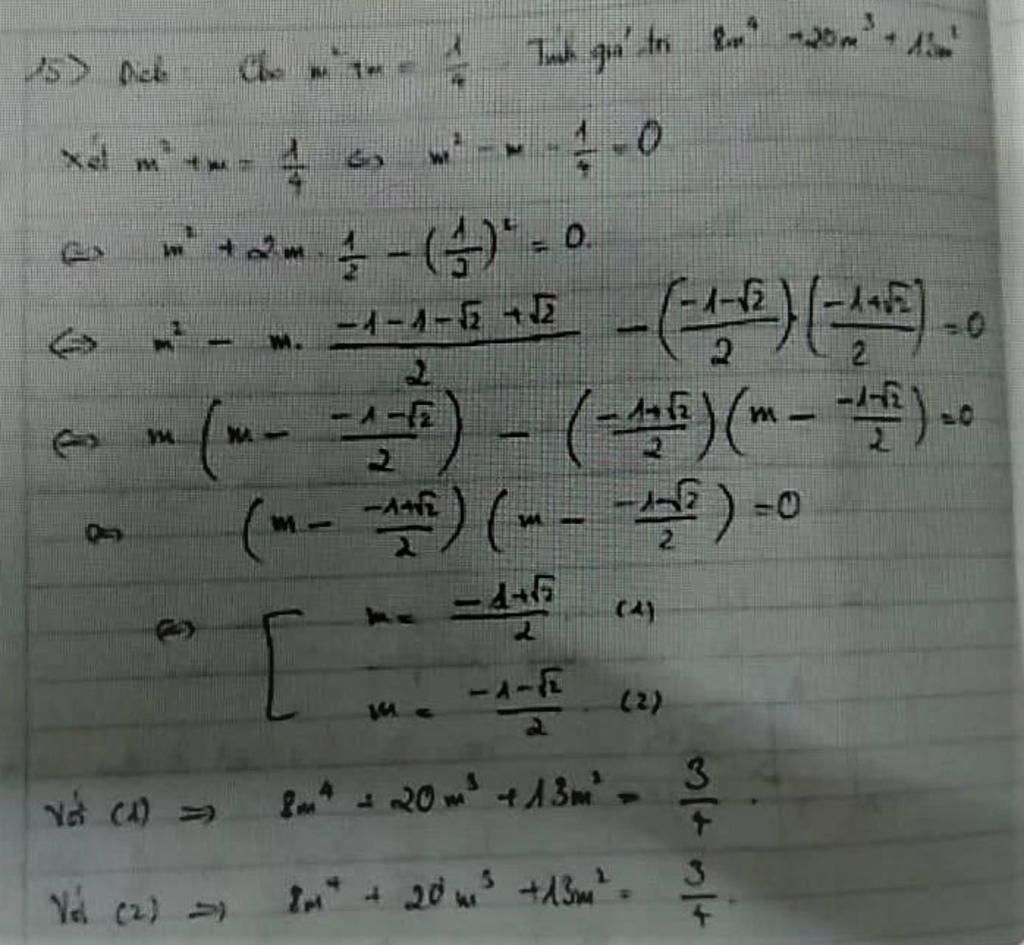 15) Dịch: Cho m² + m = 1/4 Tính giá trị 8m⁴ + 20m³ + 13m²
Xét m² + m = 1/4 ⇔ m² - m - 1/4 = 0
⇔ m² + 2m . 1/2 - (1/2)² = 0.
⇔ m² - m. (-1-1-√2+√2)/2 - ((-1-√2)/2).((-1+√2)/2) = 0
⇔ m (m - (-1-√2)/2) - ((-1+√2)/2)(m - (-1-√2)/2) = 0
⇔ (m - (-1+√2)/2) (m - (-1-√2)/2) = 0
⇔ [ m = (-1+√2)/2 (1)
m = (-1-√2)/2 (2)
Với (1) ⇒ 8m⁴ + 20m³ + 13m² = 3/4.
Với (2) ⇒ 8m⁴ + 20m³ + 13m² = 3/4.